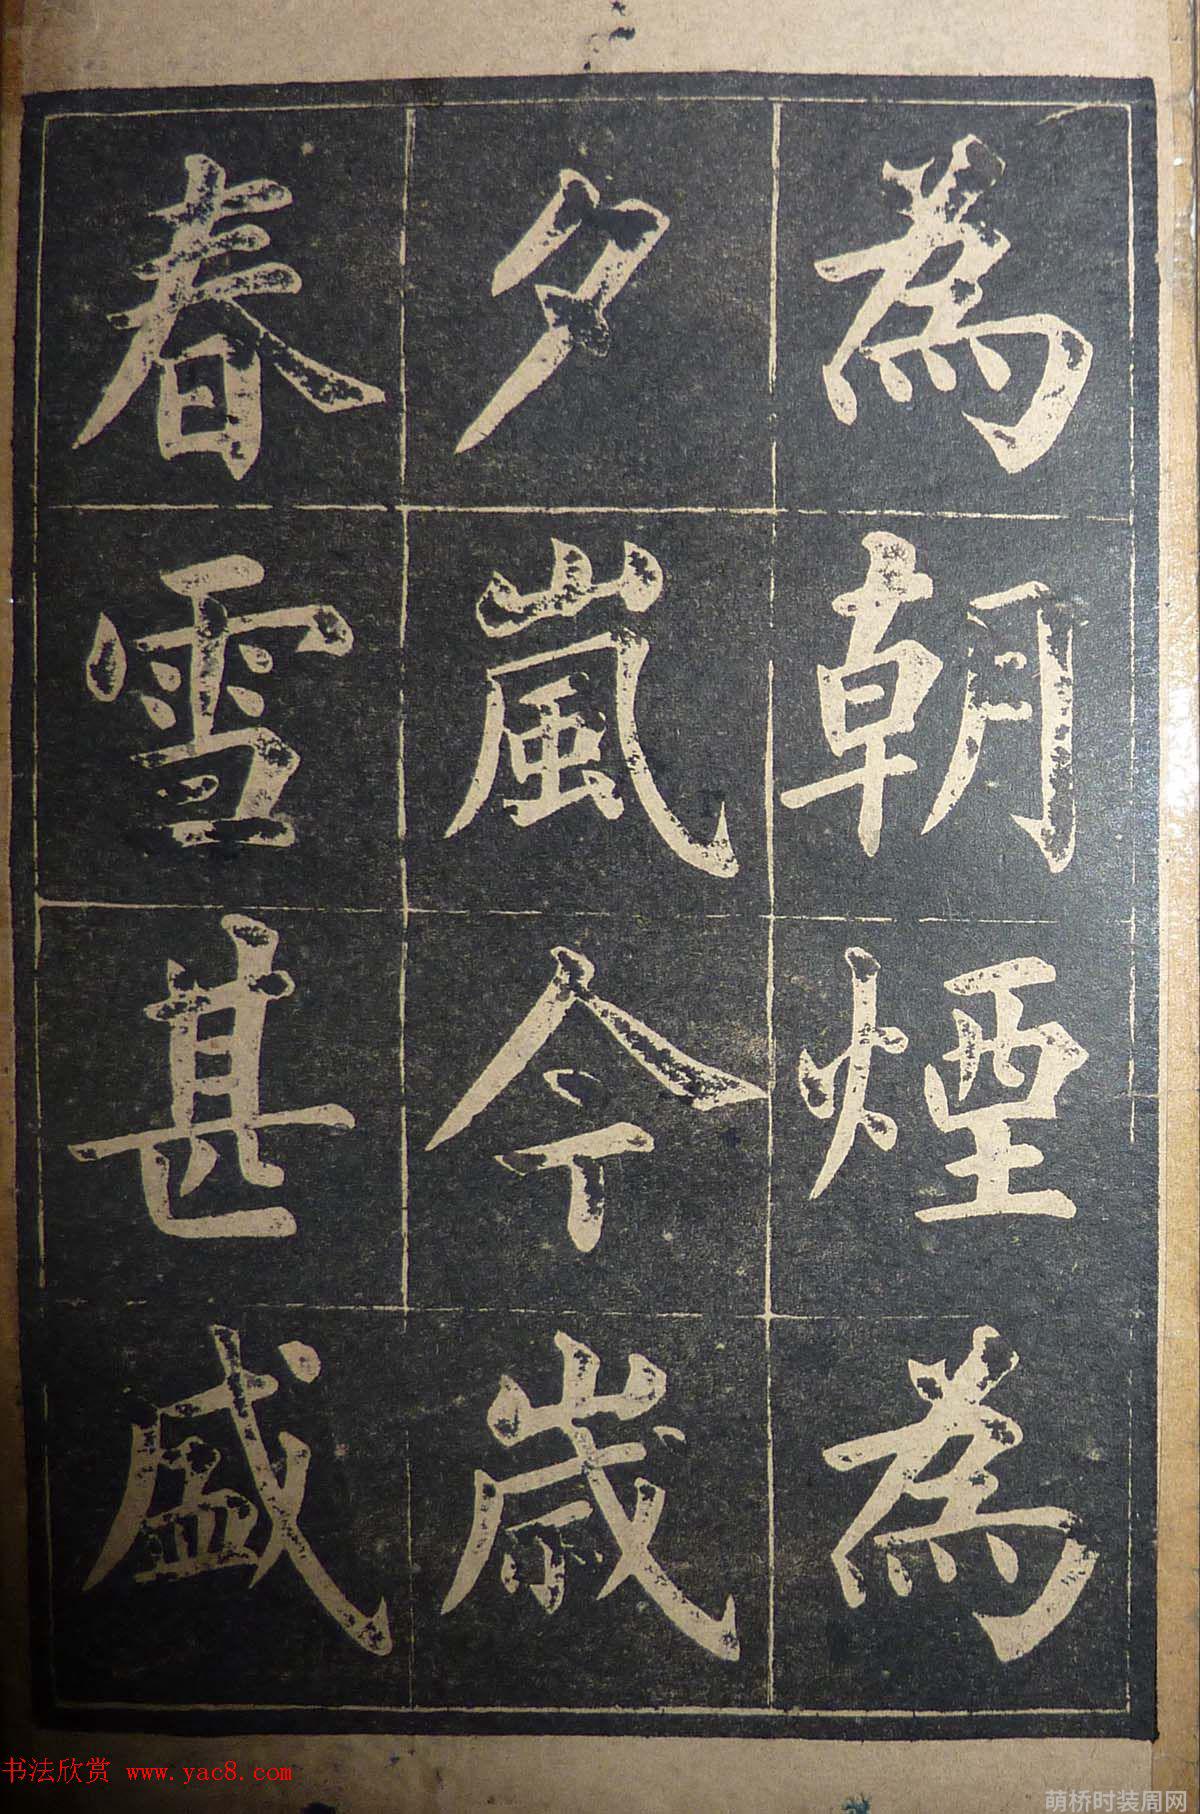 為朝煙為
夕嵐今歳
春雪甚盛
书法欣赏 www.yac8.com
萌桥时装周网